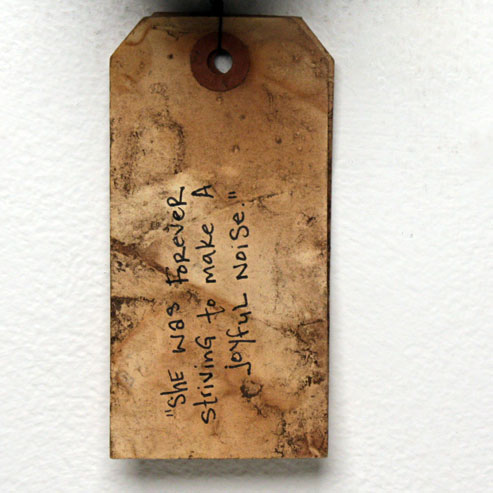 "SHE WAS FOREVER
STRIVING to MAKE A
JOYFUL NOISE."